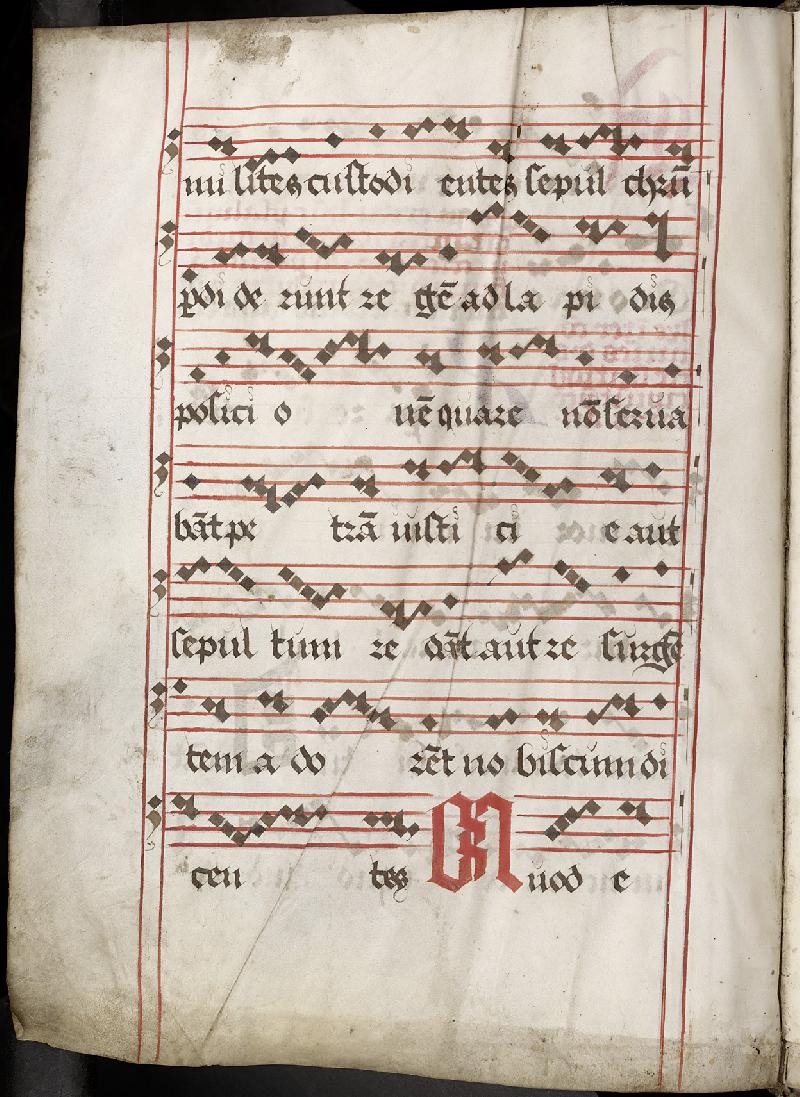 mi lites custodi entes sepul chrũ
ꝑdi de runt re gẽ ad la pi dis
posici o nẽ quare nõ serua
bãt pe trã iusti ci e aut
sepul tum re dãt aut re surgẽ
tem a do rẽt no biscum di
cen tes Quod e